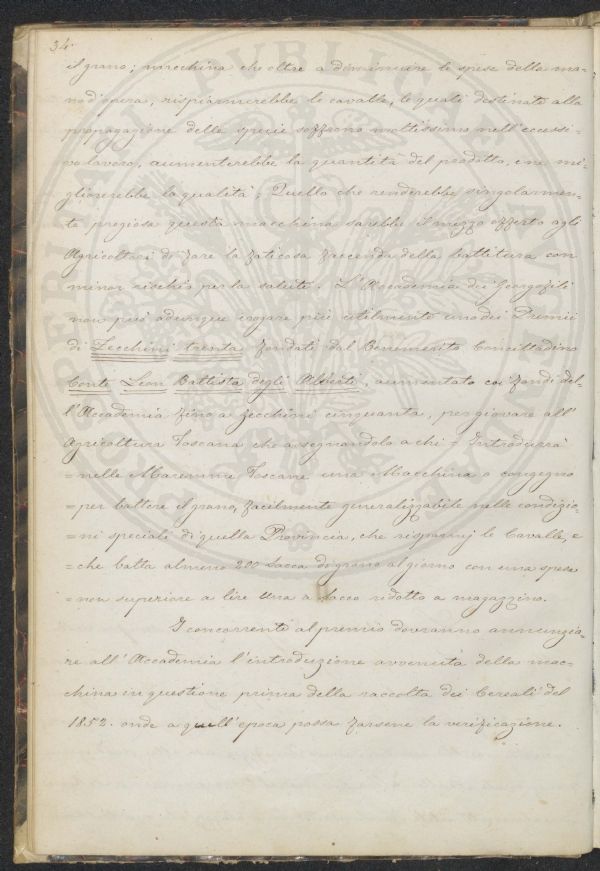 34.
il grano; macchina che oltre a diminuire le spese della ma=
no d'opera, risparmierebbe le cavalle, le quali destinate alla
propagazione delle specie soffrono moltissimo nell'eccessi=
vo lavoro, aumenterebbe la quantità del prodotto, e ne mi=
gliorerebbe la qualità; Quello che renderebbe singolarmen=
te pregiosa questa macchina sarebbe il mezzo offerto agli
Agricoltori di fare la faticosa faccenda della battitura con
minor rischio per la salute. L'Accademia dei Georgofili
non può adunque erogare più utilmente uno dei Premii
di Zecchini trenta fondati dal Benemerito Concittadino
Conte Leon Battista degli Alberti, aumentato coi fondi del=
l'Accademia fino a zecchini cinquanta, per giovare all'
Agricoltura Toscana che assegnandolo a chi = Introdurrà
=nelle Maremme Toscane una Macchina o congegno
=per battere il grano, facilmente generalizzabile nelle condizio=
=ni speciali di quella Provincia, che risparmj le Cavalle, e
=che batta almeno 200 Sacca di grano al giorno con una spesa
=non superiore a lire Una a Sacco ridotto a magazzino.
I concorrenti al premio dovranno annunzia=
re all'Accademia l'introduzione avvenuta della mac=
china in questione prima della raccolta dei Cereali del
1852. onde a quell'epoca possa farsene la verificazione.
PERIALI PUBLICAE